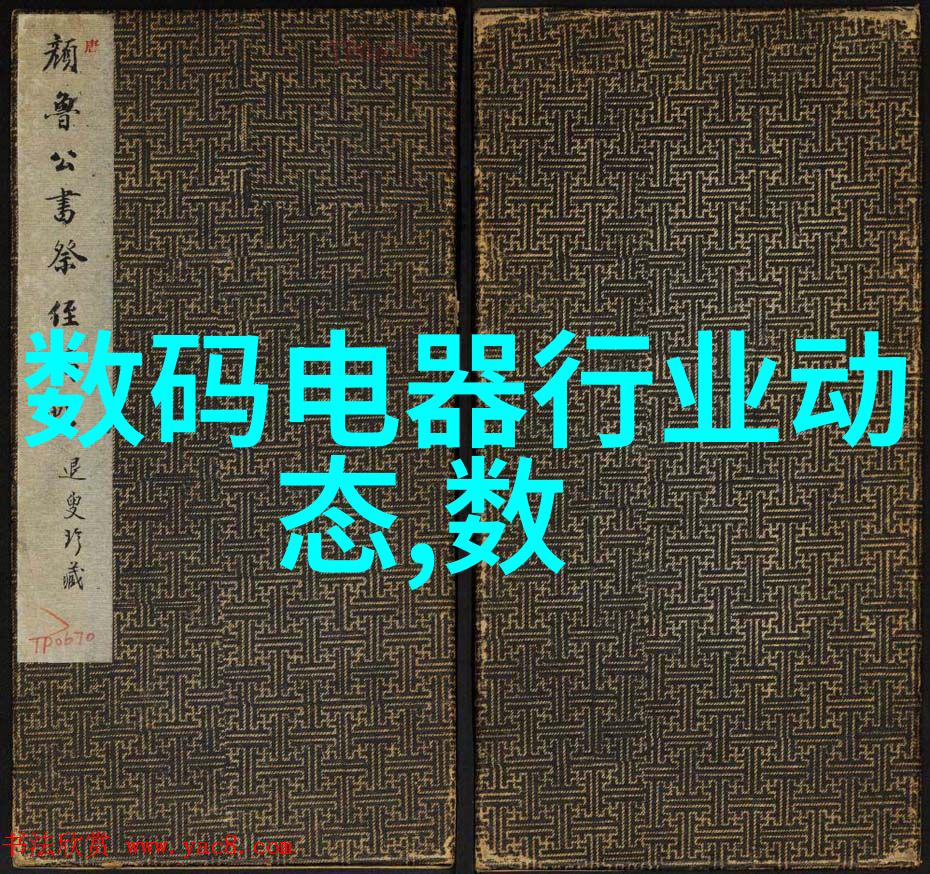 唐
顔魯公書祭侄
退叟珍藏
TP0670
数码电器行业动
态,数
书法欣赏 www.yac8.com